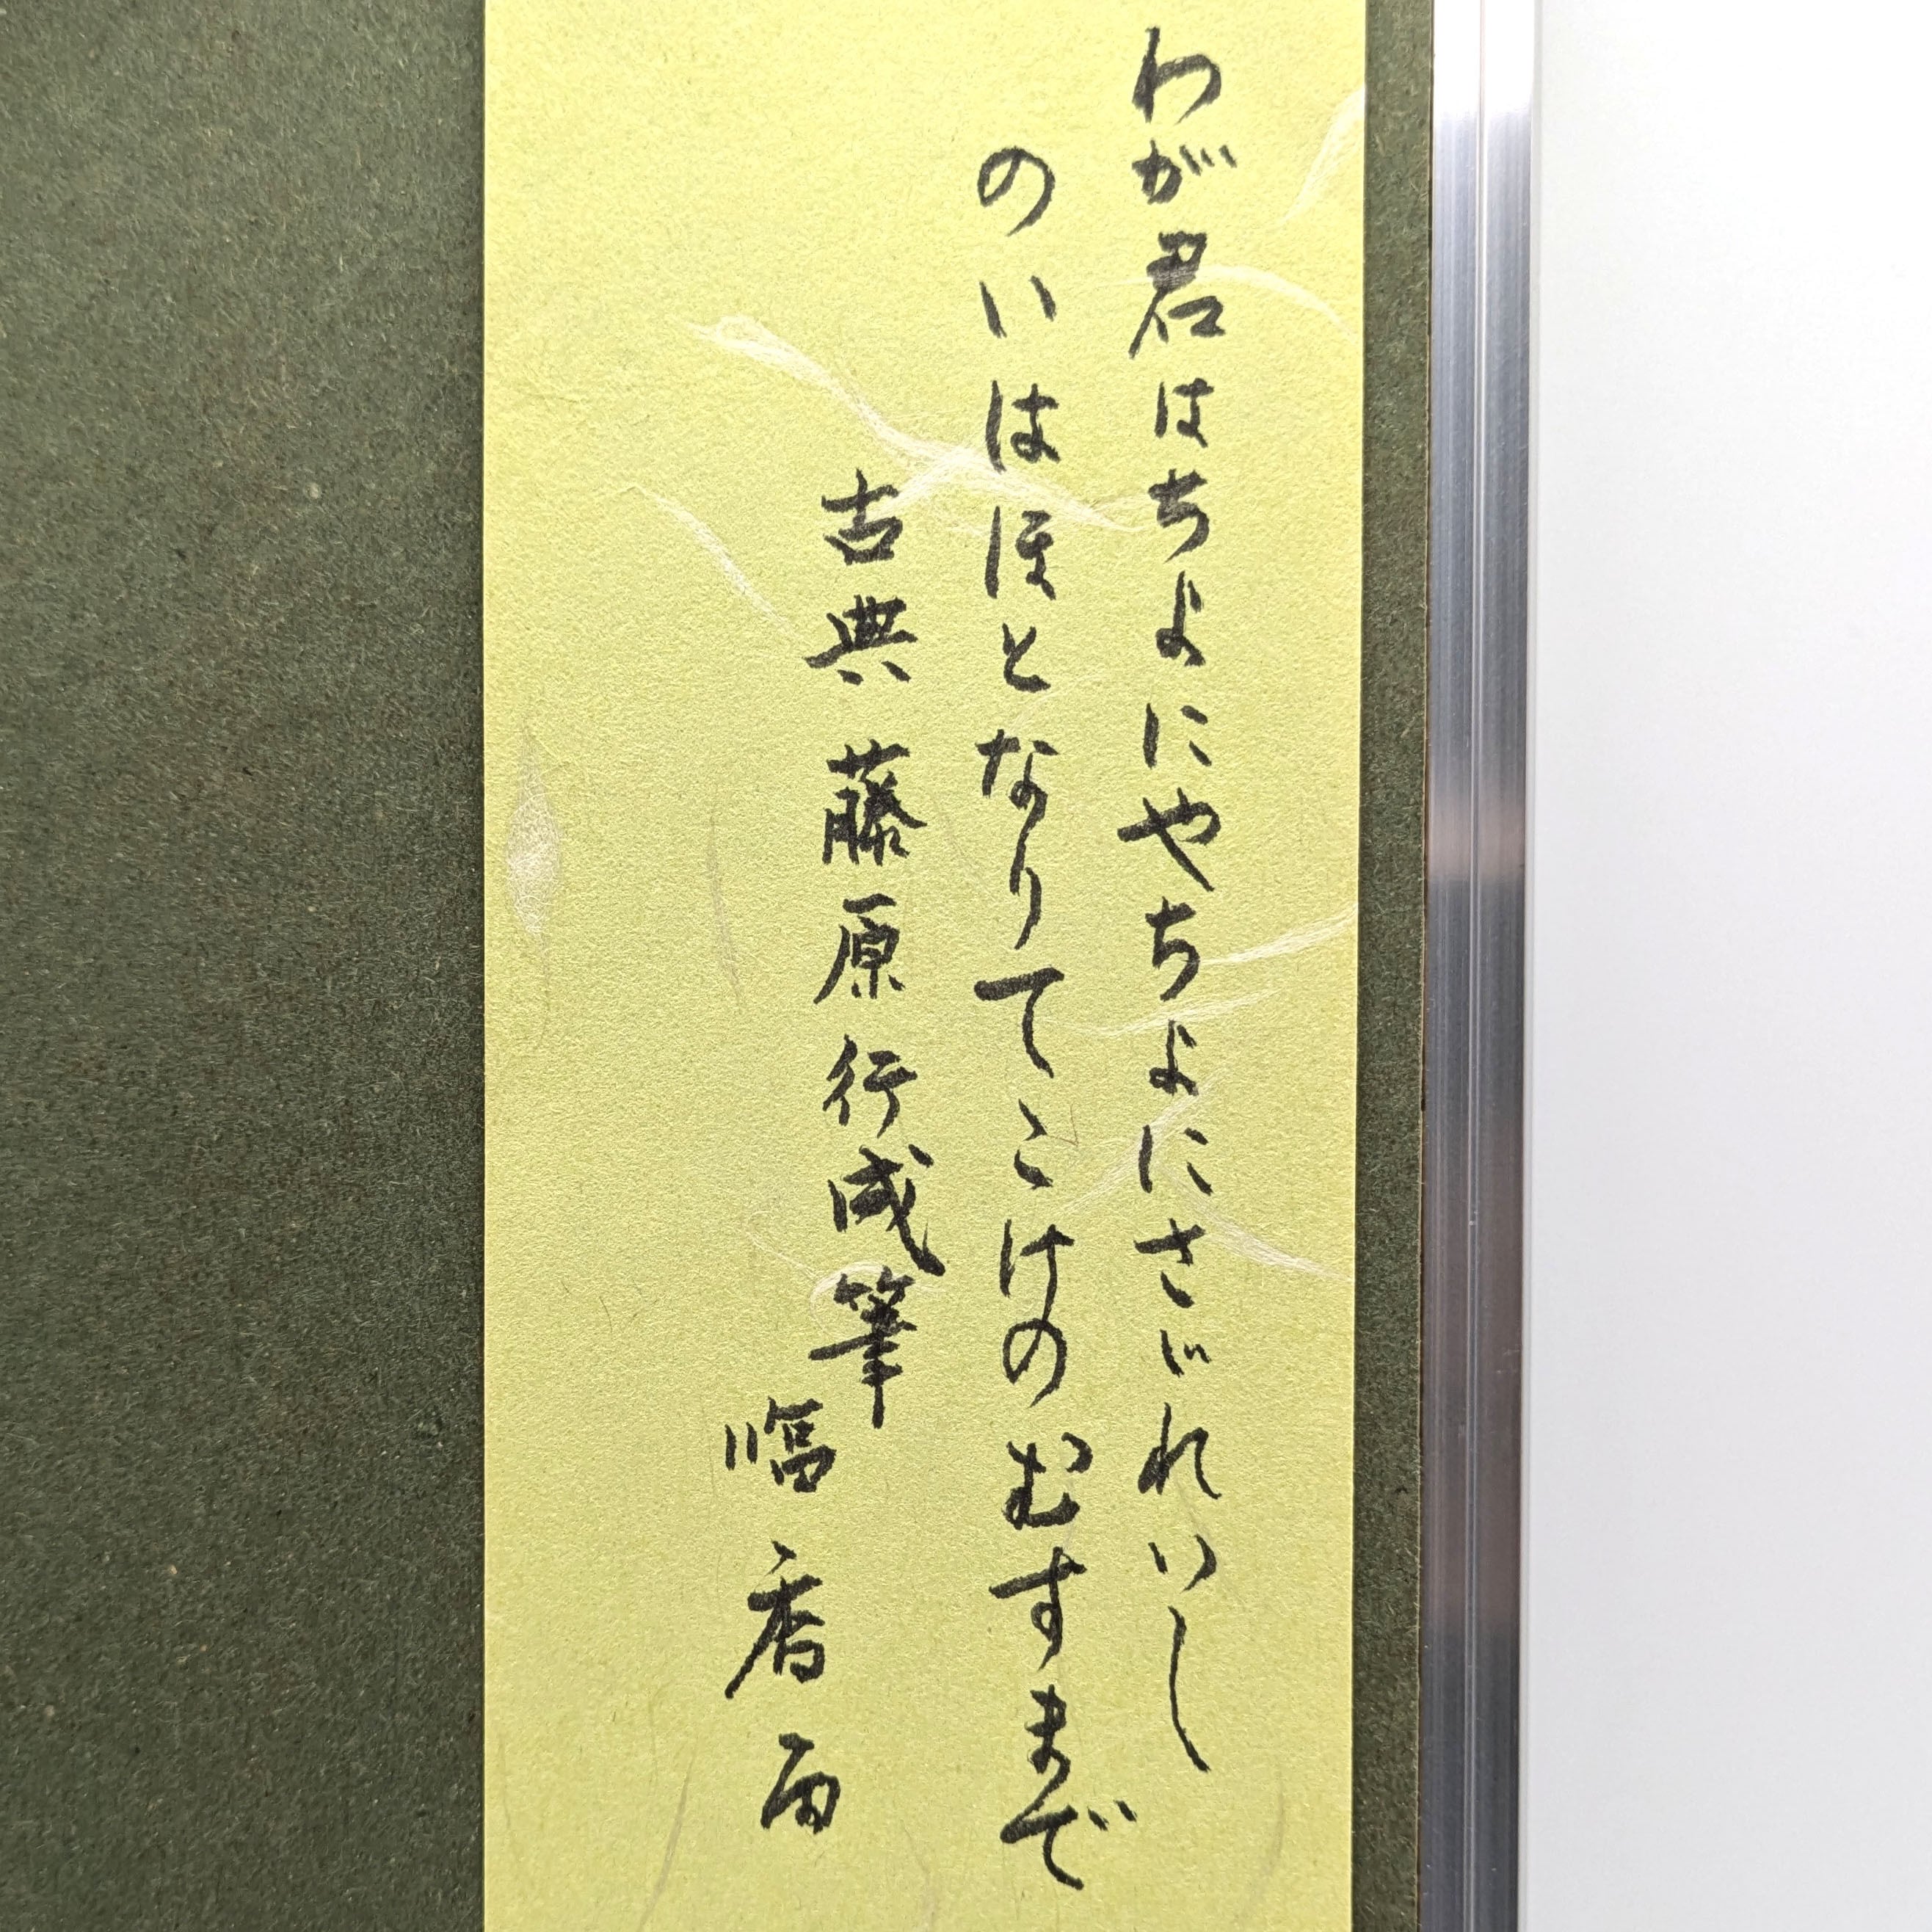 わが君はちよにやちよにさゞれいし
のいはほとなりてこけのむすまで
古典 藤原行成筆
臨 香雨